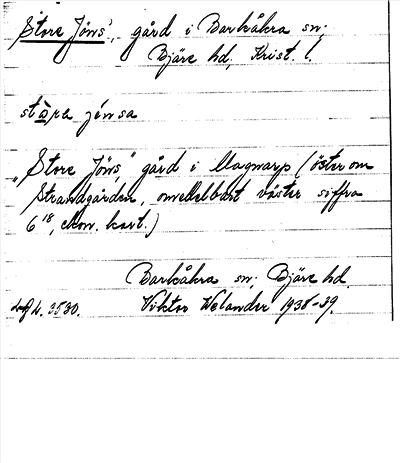 Store Jöns', gård i Barkåkra sn;
Bjäre hd, Krist. l.
stòra jénsa
"Store Jöns," gård i Magnarp (öster om
Strandgården, omedelbart väster siffra
6¹⁸, ekon. kart.)
Barkåkra sn. Bjäre hd
Viktor Welander 1938-39.
3530.